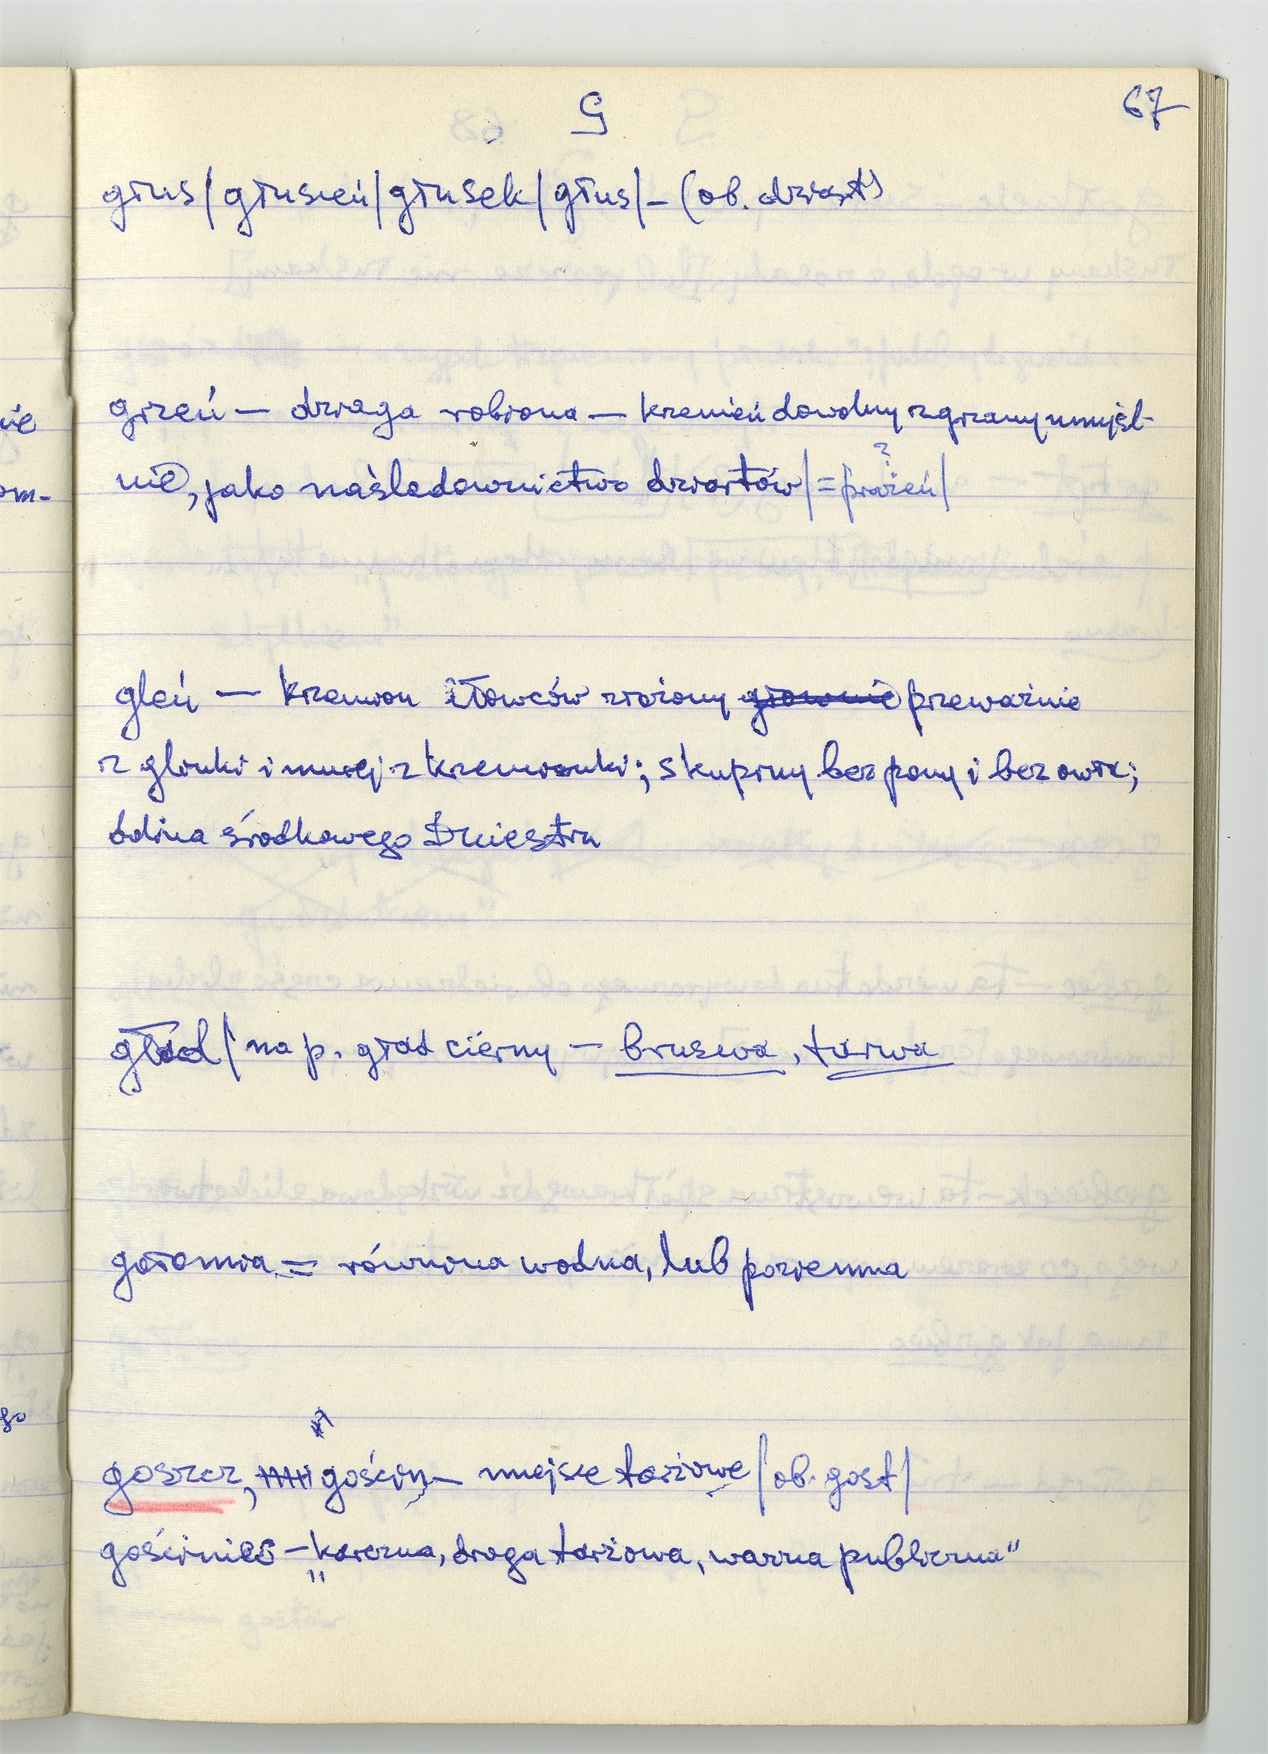 G
67
głus/głuszeń/głusek/głus/– (ob. dział)
grzeń – dziaga robiona – krzemień dowolny zgrzany umyśl-
nie, jako naśladownictwo dziartów/=prażeń/
?
gleń – krzemion iłowców złożony głownie przeważnie
z glinki i mniej z krzemionki; skupiny bez pony i bez owic;
dolina środkowego Dniestru
głód/ na p. głód cierny – bruswa, tarwa
gołomia = równina wodna, lub poziemna
goszcz, gościn – miejsce targowe/ob. gost/
gościniec – "karczma, droga targowa, ważna publiczna"